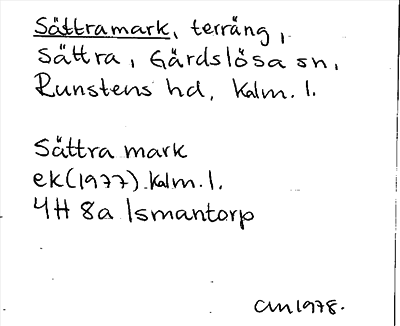 Sättramark, terräng,
Sättra, Gärdslösa sn,
Runstens hd, Kalm. l.
Sättra mark
ek (1977) Kalm. l.
4H 8a Ismantorp
am 1978.